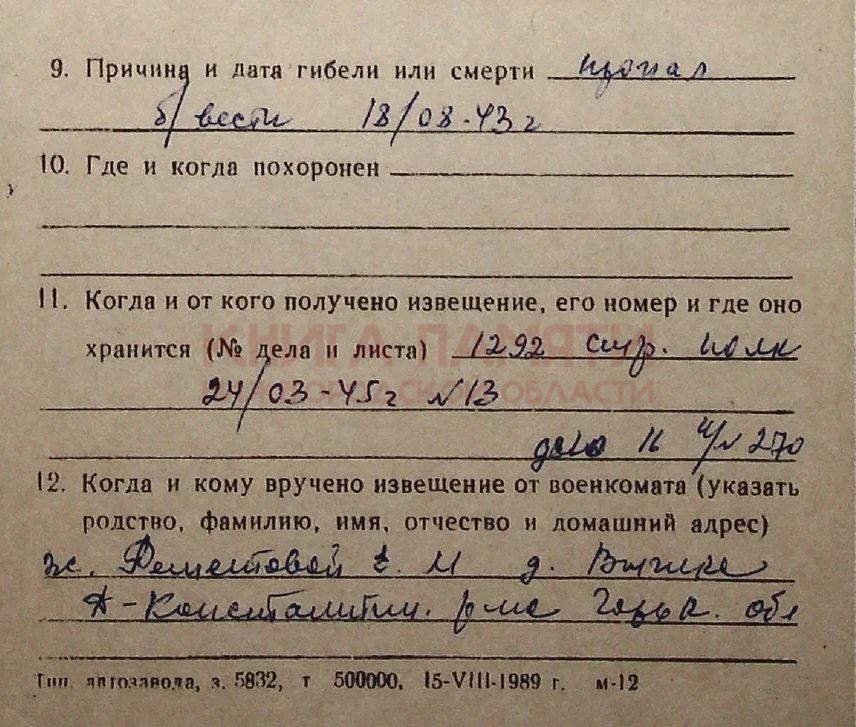 9. Причина и дата гибели или смерти пропал
б/вести 18/08-43 г
10. Где и когда похоронен
11. Когда и от кого получено извещение, его номер и где оно
КНИГА ПАМЯТИ
хранится (№ дела и листа) 1292 стр. полк
ОБЛАСТИ
24/03-45 г №13
дело 16 270
12. Когда и кому вручено извещение от военкомата (указать
родство, фамилию, имя, отчество и домашний адрес)
ж. М д.
Д-Константин. р-на Горьк. обл
Тип. автозавода, з. 5832, т 500000, 15-VIII-1989 г. м-12